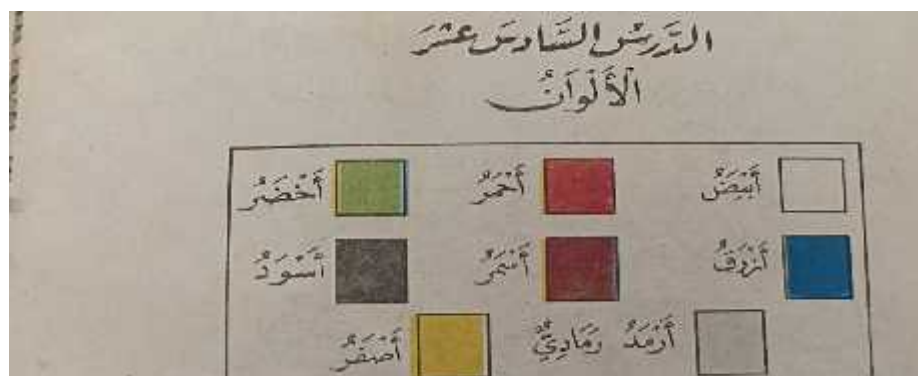 الدَّرسُ السَّادسَ عشَرَ
الْأَلْوَانُ
أَبْيَضُ أَحْمَرُ أَخْضَرُ
أَزْرَقُ أَسْمَرُ أَسْوَدُ
أَرْمَدُ رَمَادِيٌّ أَصْفَرُ